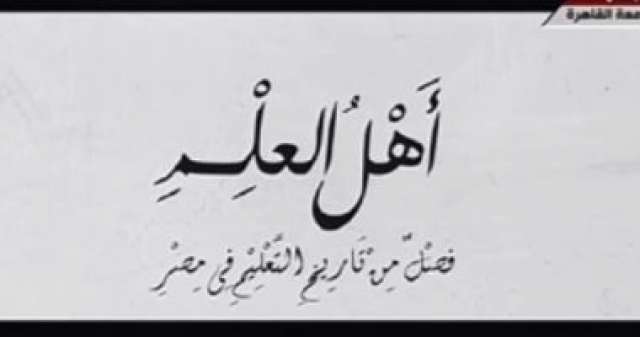 معة القاهرة
أَهْلُ العِلْمِ
فَصْلٌ مِنْ تَارِيخِ التَّعْلِيْمِ فِي مِصْرِ